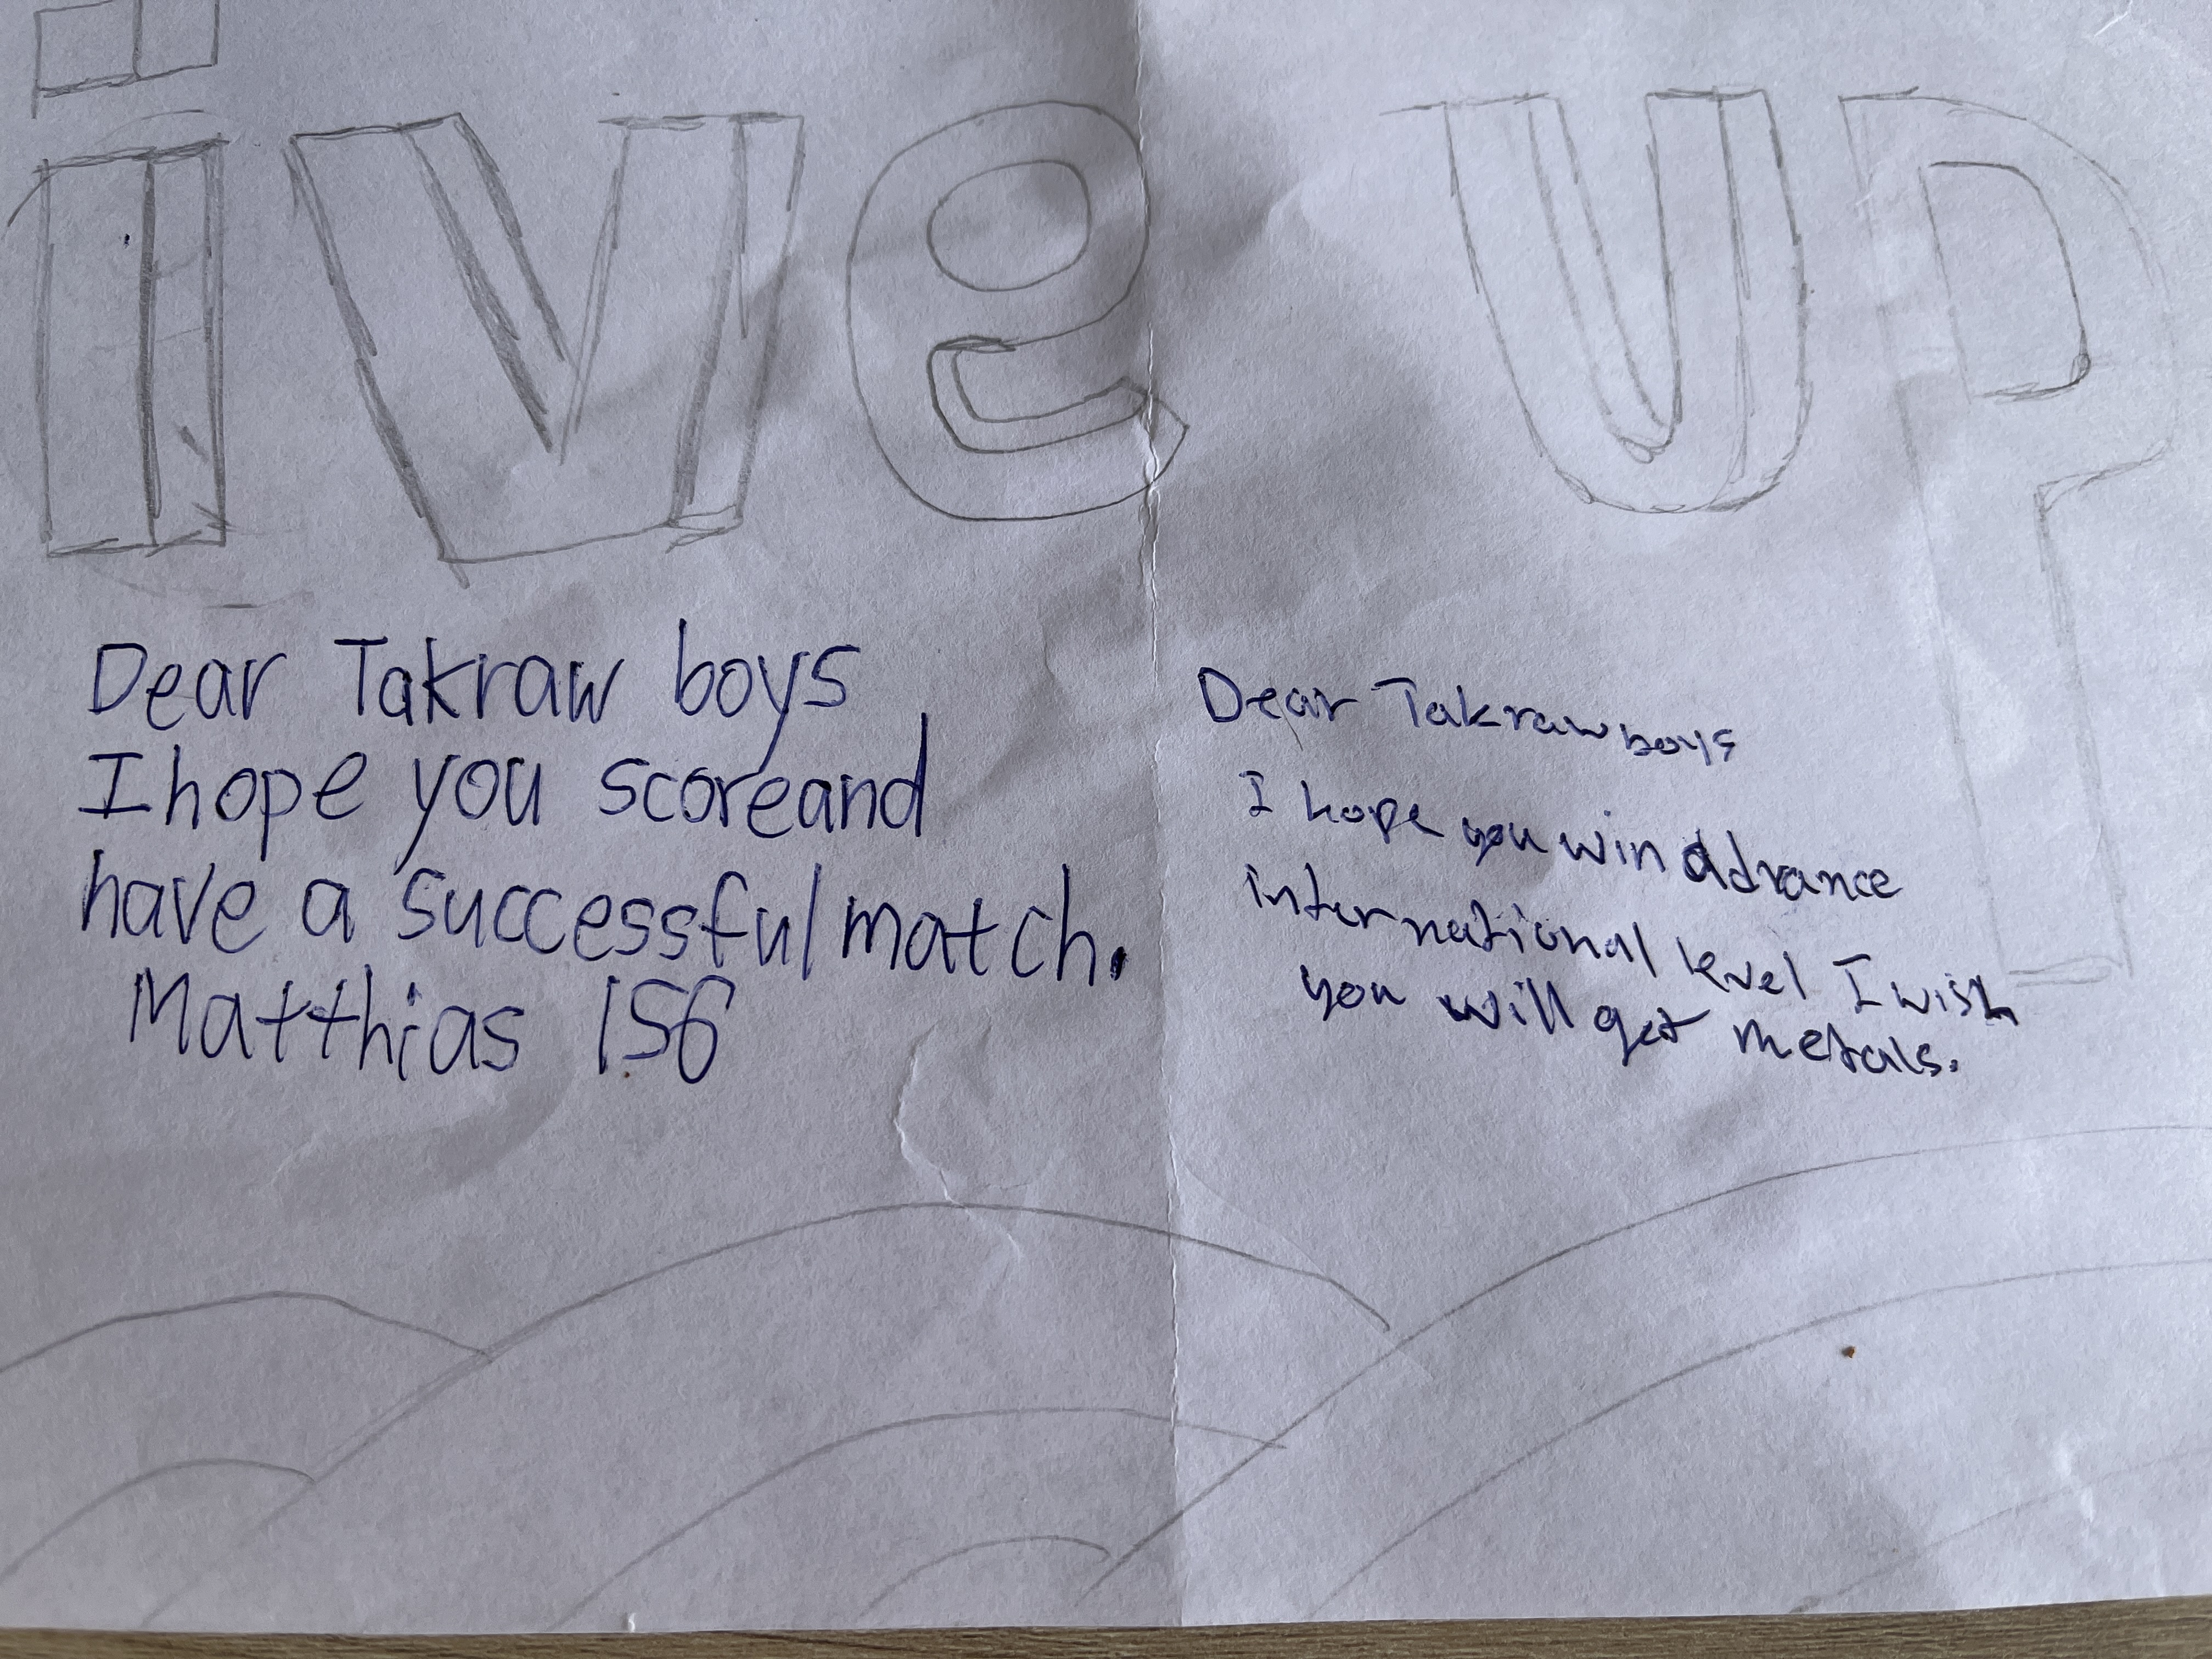 ive up
Dear Takraw boys
I hope you scoreand
have a successful match.
Matthias 1S6
Dear Takraw boys
I hope you win advance
international level I wish
you will get metals.